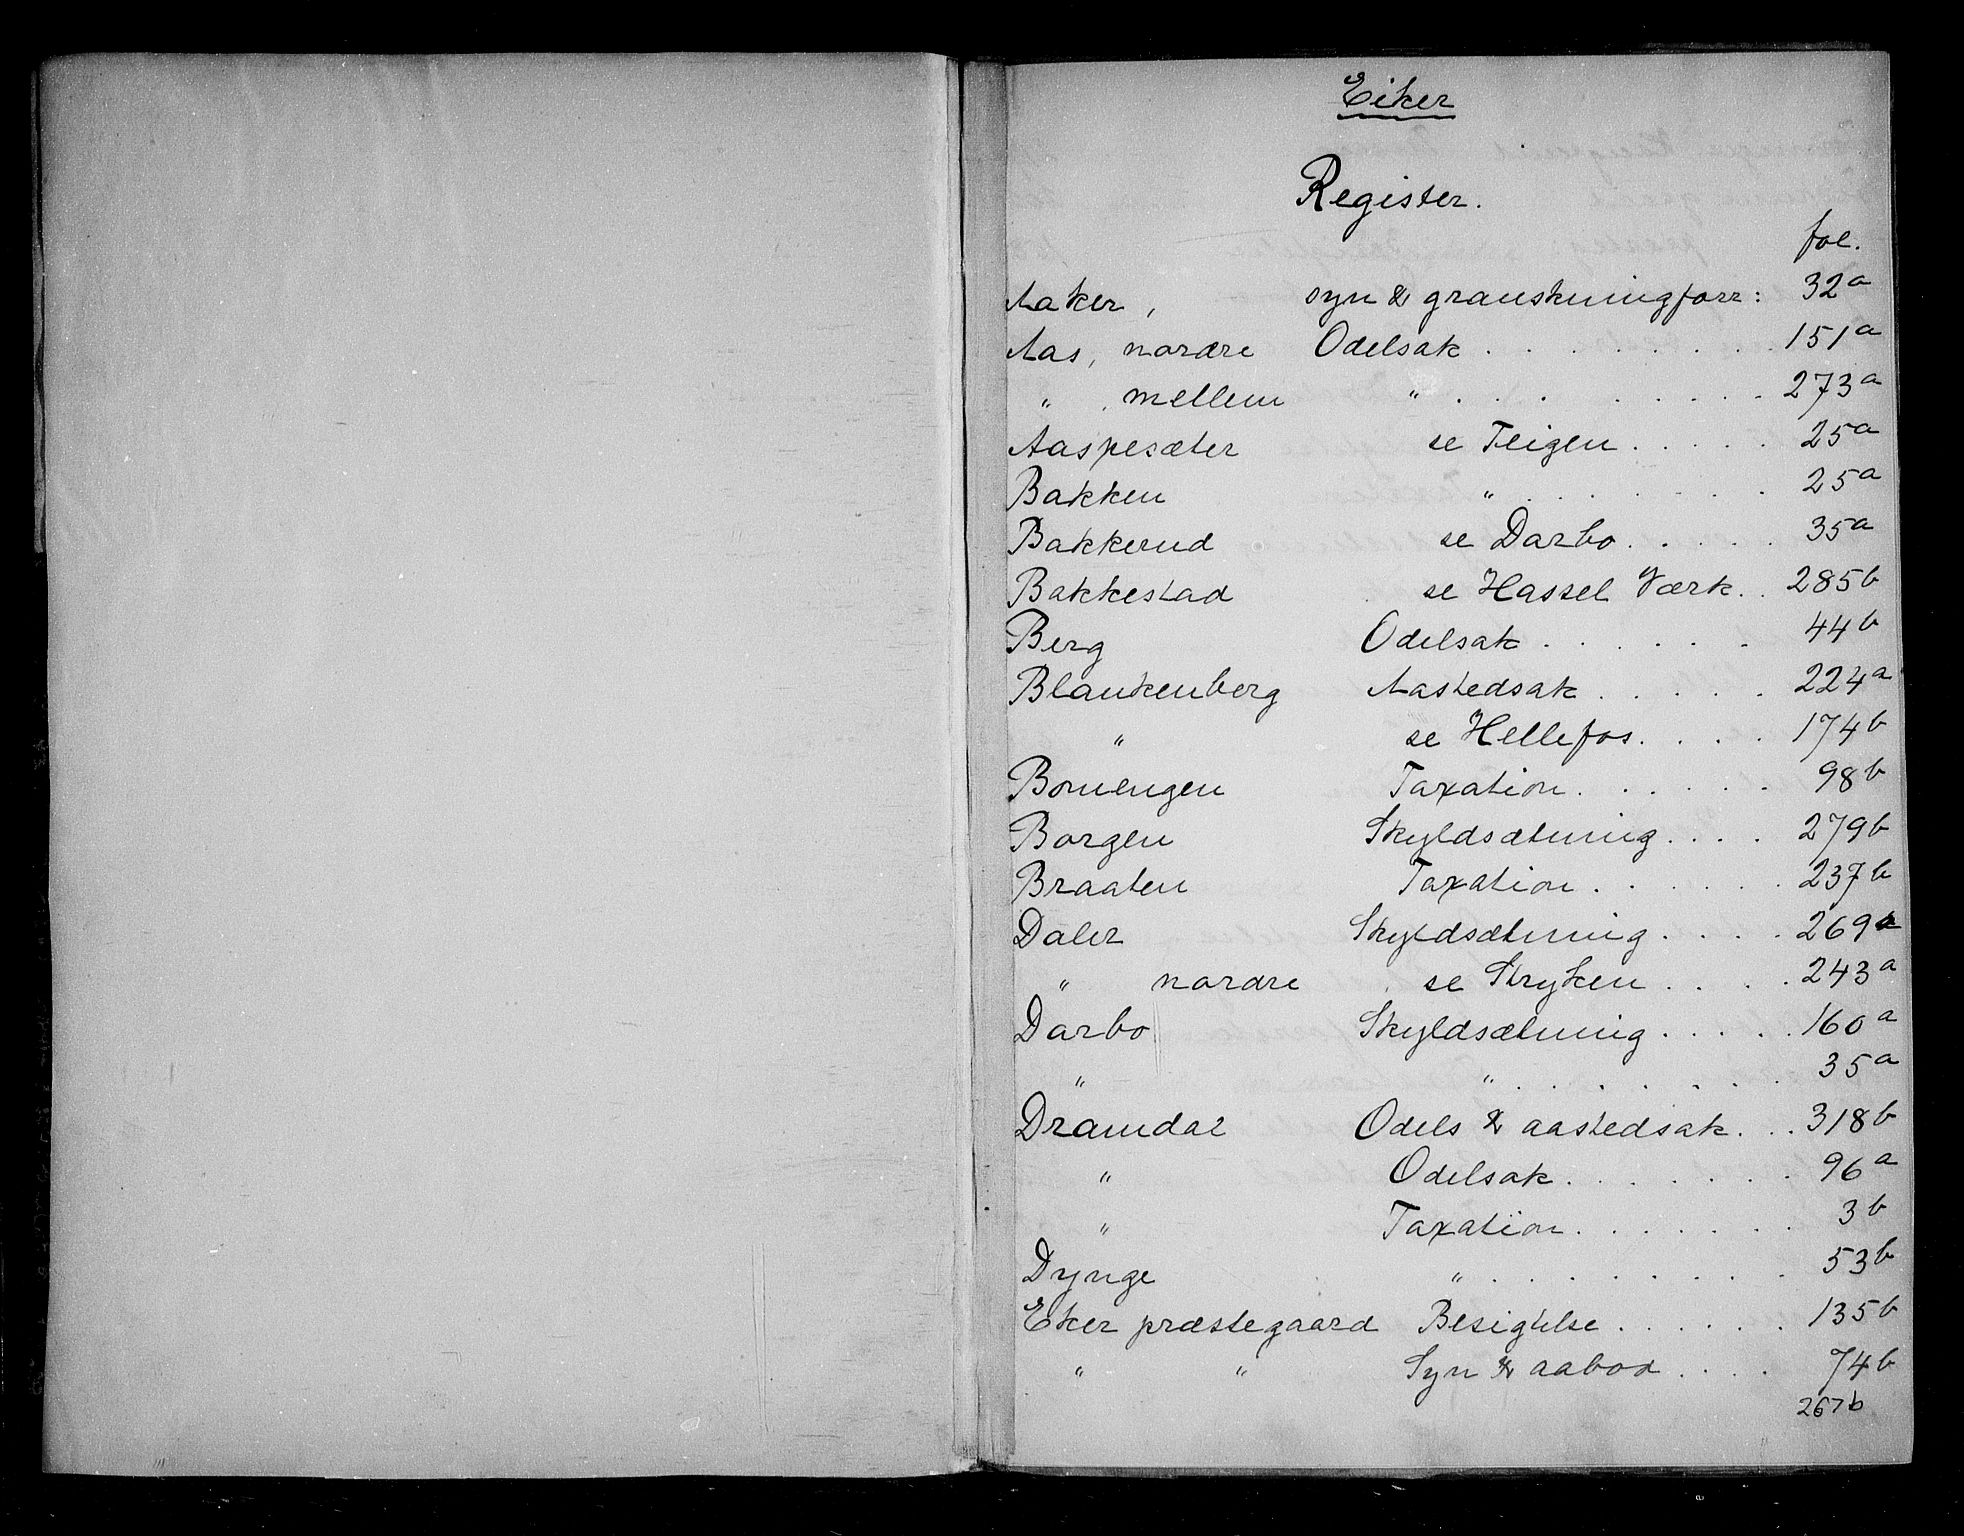 Eiker
Register.
fol.
Aaker, syn & granskningforr: 32a
Aas, nordre Odelsak . . . . . . . . 151a
" , mellem " . . . . . . . . 273a
Aaspesæter se Teigen . . . . 25a
Bakken " . . . . . . . 25a
Bakkerud se Darbo . . . . . 35a
Bakkestad se Hassel Værk . . 285b
Berg Odelsak . . . . . . 44b
Blankenberg Aastedsak . . . . . 224a
" se Hellefos . . . . 174b
Bomengen Taxation . . . . . . 98b
Borgen Skyldsætning . . . . 279b
Braaten Taxation . . . . . . 237b
Daler Skyldsætning . . . . 269a
" nordre se Stryken . . . . 243a
Darbo Skyldsætning . . . . . 160a
" " . . . . . . . 35a
Dramdal Odels & aastedsak . . . 318b
" Odelsak . . . . . . . 96a
" Taxation . . . . . . . 3b
Dynge " . . . . . . . . 53b
Eker præstegaard Besigtelse . . . . . . 135b
" " Syn & aabod . . . . 74b
267b